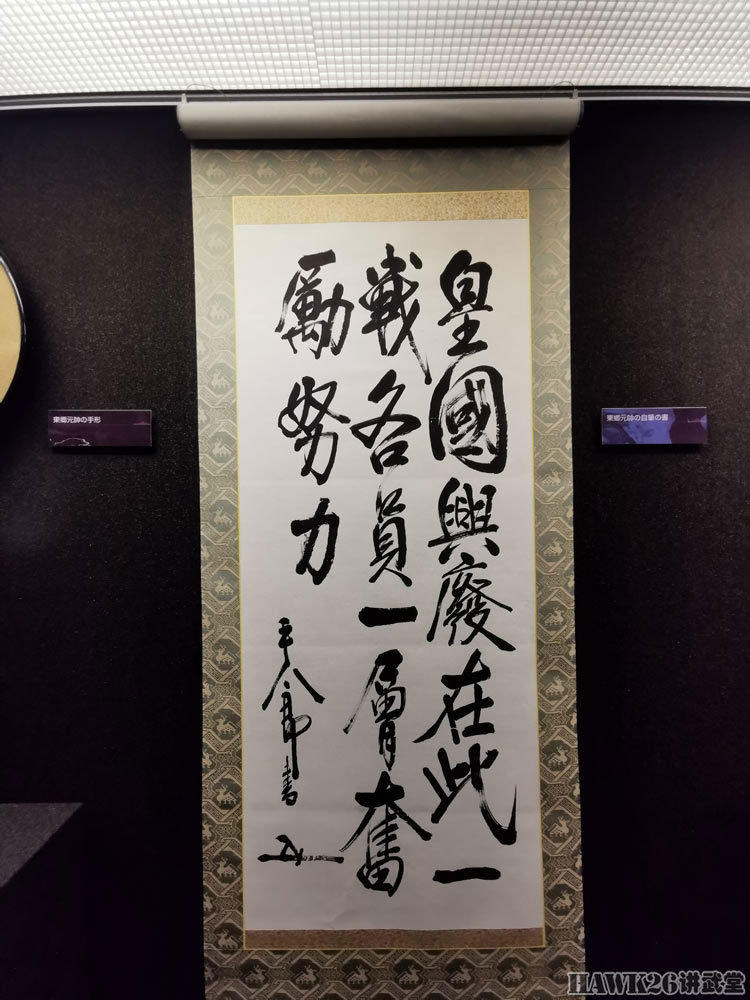 皇國興廢在此一
戰各員一層奮
勵努力
平八郎書
東郷元帥の手形
東郷元帥の自筆の書
HAWK26讲武堂